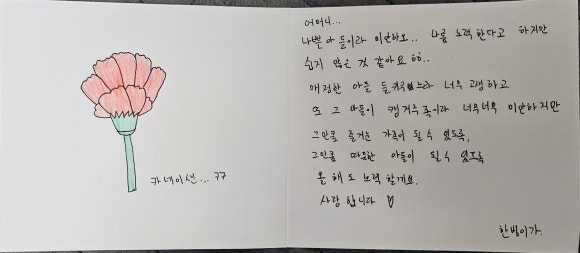 카네이션... ㅋㅋ
어머니...
나쁜 아들이라 미안하오.. 나름 노력한다고 하지만
쉽지 않은 것 같아요 ㅎㅎ.
매정한 아들 들 너무 고생하고
또 그 아들이 캥거루족이라 너무너무 미안하지만
그만큼 즐거운 가족이 될 수 있도록,
그만큼 따뜻한 아들이 될 수 있도록
올 해도 노력 할게요.
사랑합니다 ♡
한범이가.